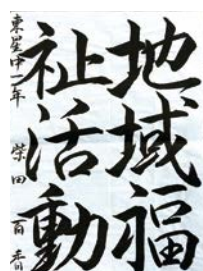 地域福
祉活動
東星中一年 柴田百香